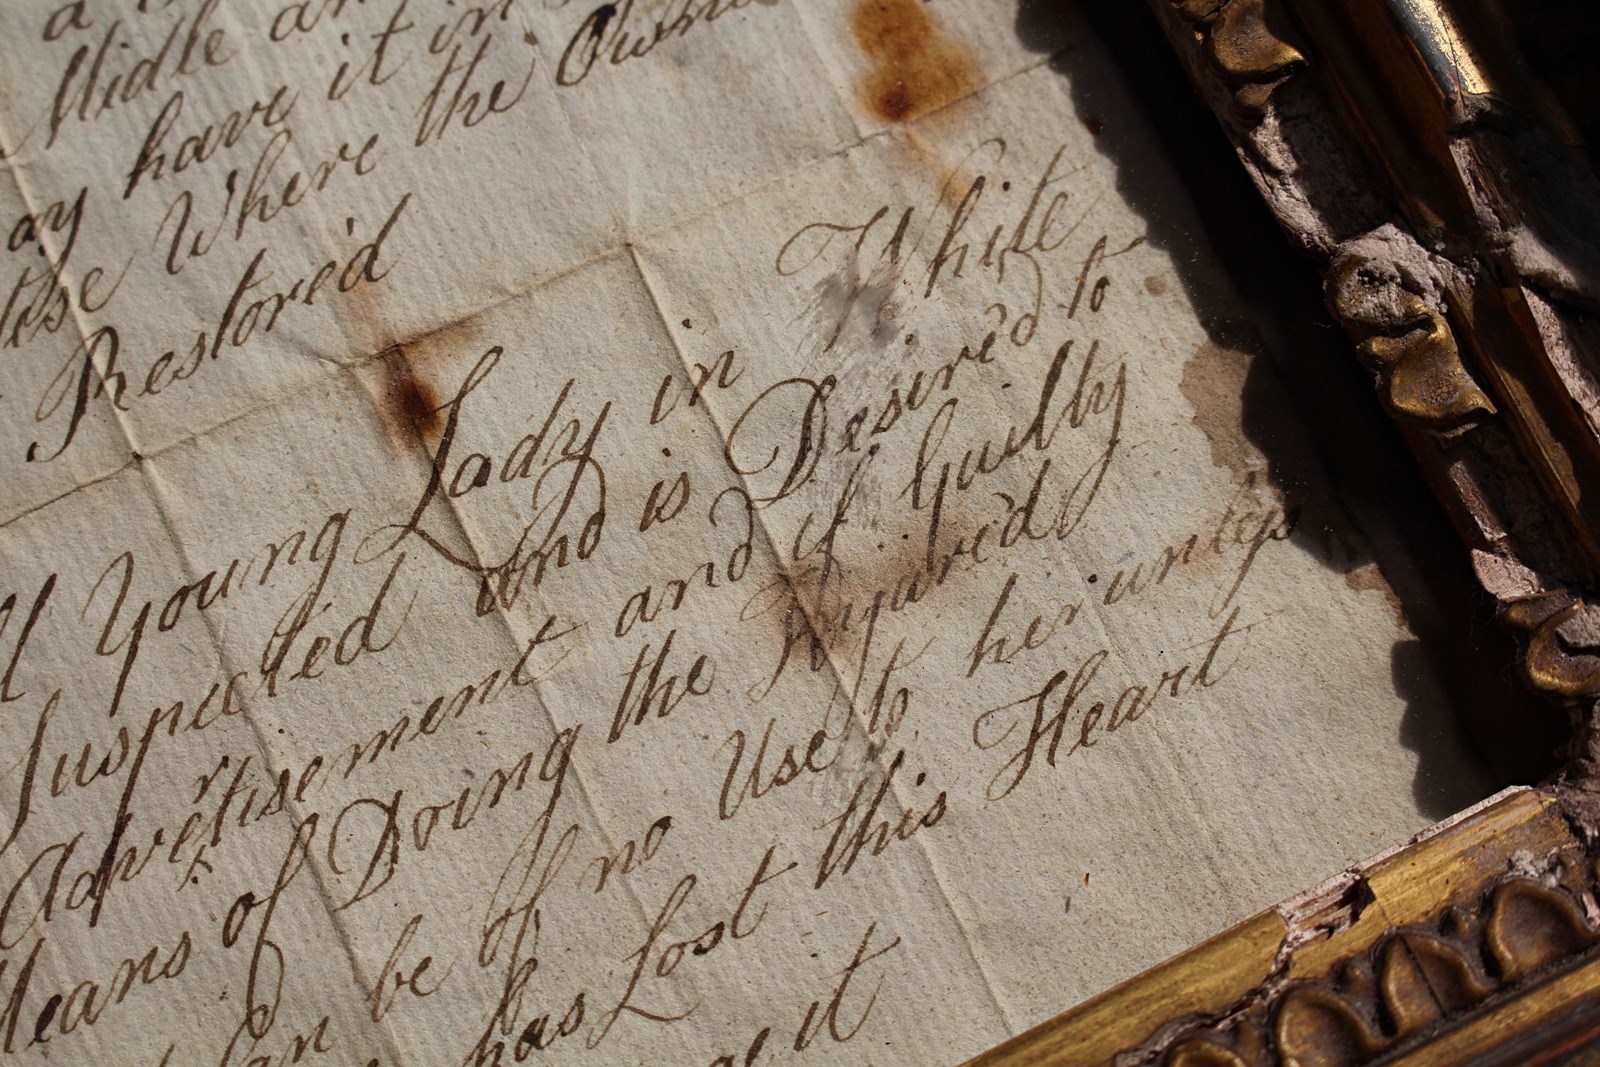 a
Midle an
ay have it in
tise Where the Owne
Restor'd
Young Lady in White
Suspected And is Desired to
Advertisement and if Guilty
Means of Doing the Ingured
Can be of no Use to her unless
has Lost this Heart
it